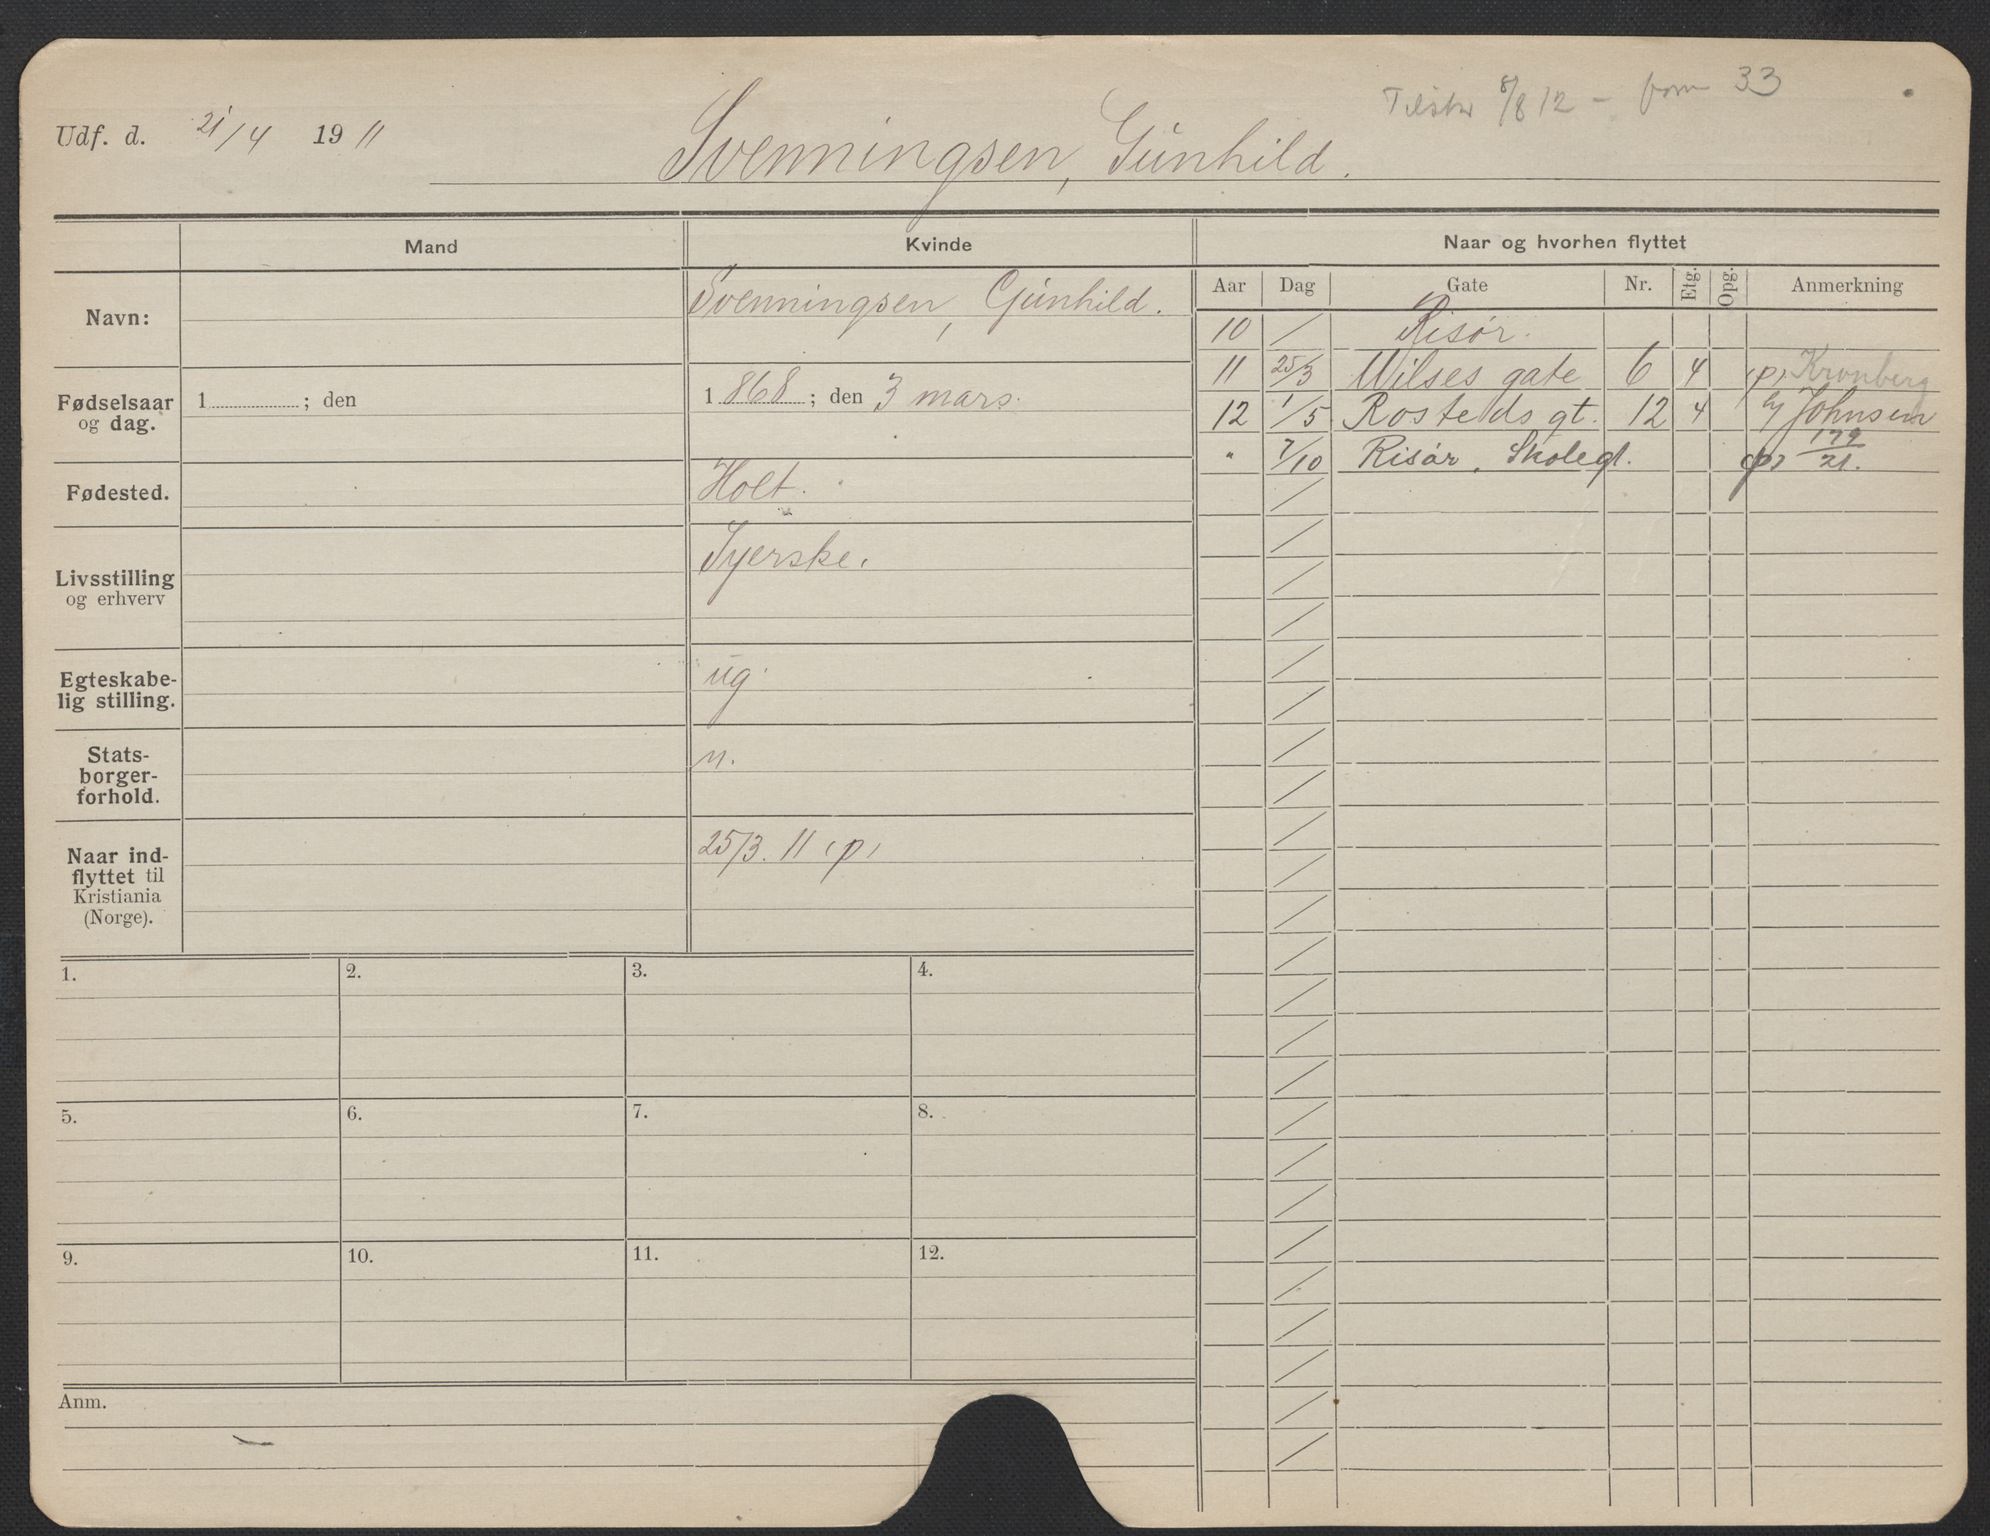 Udf. d. 21/4 1911
8/8 12 - 33
Svenningsen, Gunhild.
Mand
Kvinde
Naar og hvorhen flyttet
Aar Dag Gate Nr. Etg. Opg. Anmerkning
Navn:
Svenningsen, Gunhild.
10 / Risør.
11 25/3 Wilses gate 6 4 (p) Kronberg
12 1/5 Rosteds gt. 12 4 Johnsen
" 7/10 Risør, Skolegt. (p) 179/21.
Fødselsaar og dag.
1 ; den
1868; den 3 mars.
Fødested.
Holt.
Livsstilling og erhverv
Syerske.
Egteskabe-
lig stilling.
ug.
Stats-
borger-
forhold.
n.
Naar ind-
flyttet til
Kristiania
(Norge).
25/3. 11 (p)
1. 2. 3. 4.
5. 6. 7. 8.
9. 10. 11. 12.
Anm.